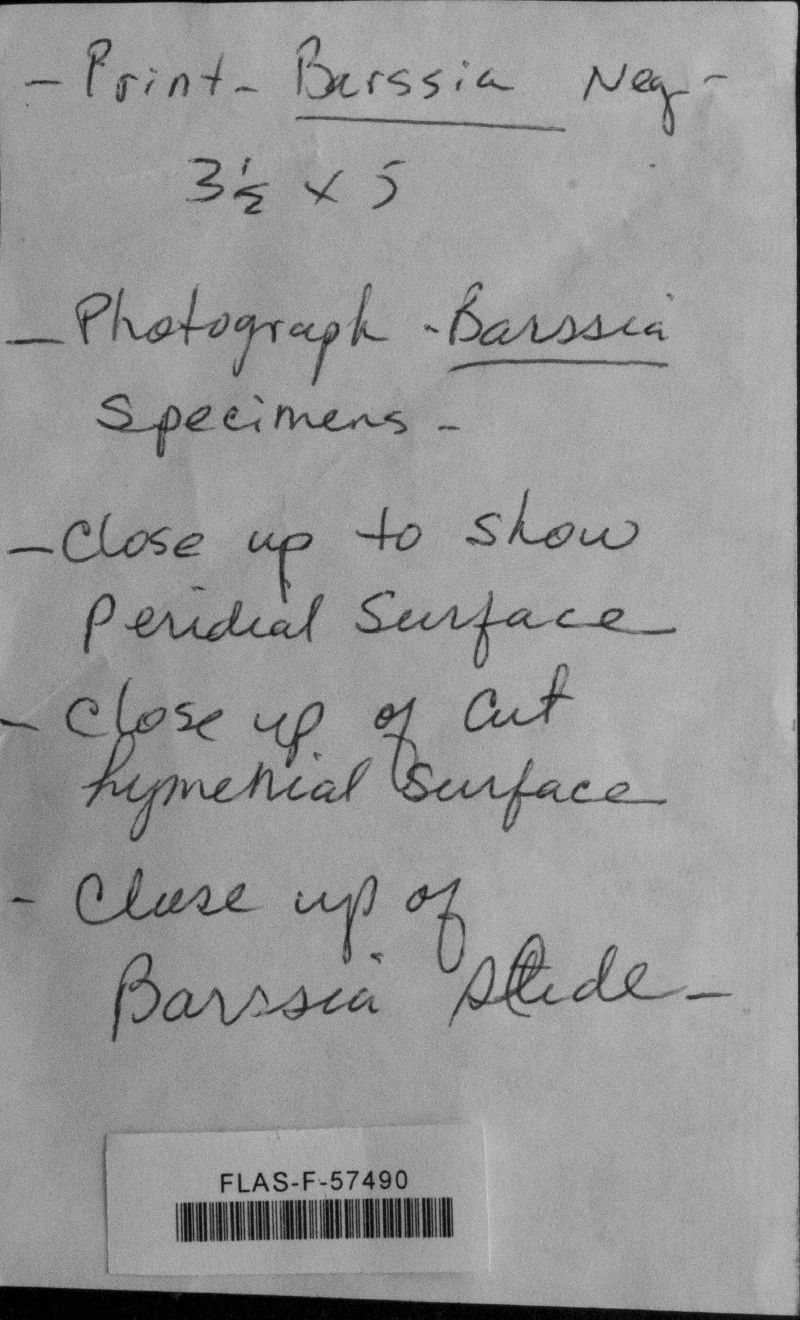 - Print - Barssia Neg -
3½ x 5
- Photograph - Barssia
Specimens -
- Close up to show
Peridial Surface
- Close up of cut
hymenial Surface
- Close up of
Barssia slide -
FLAS-F-57490